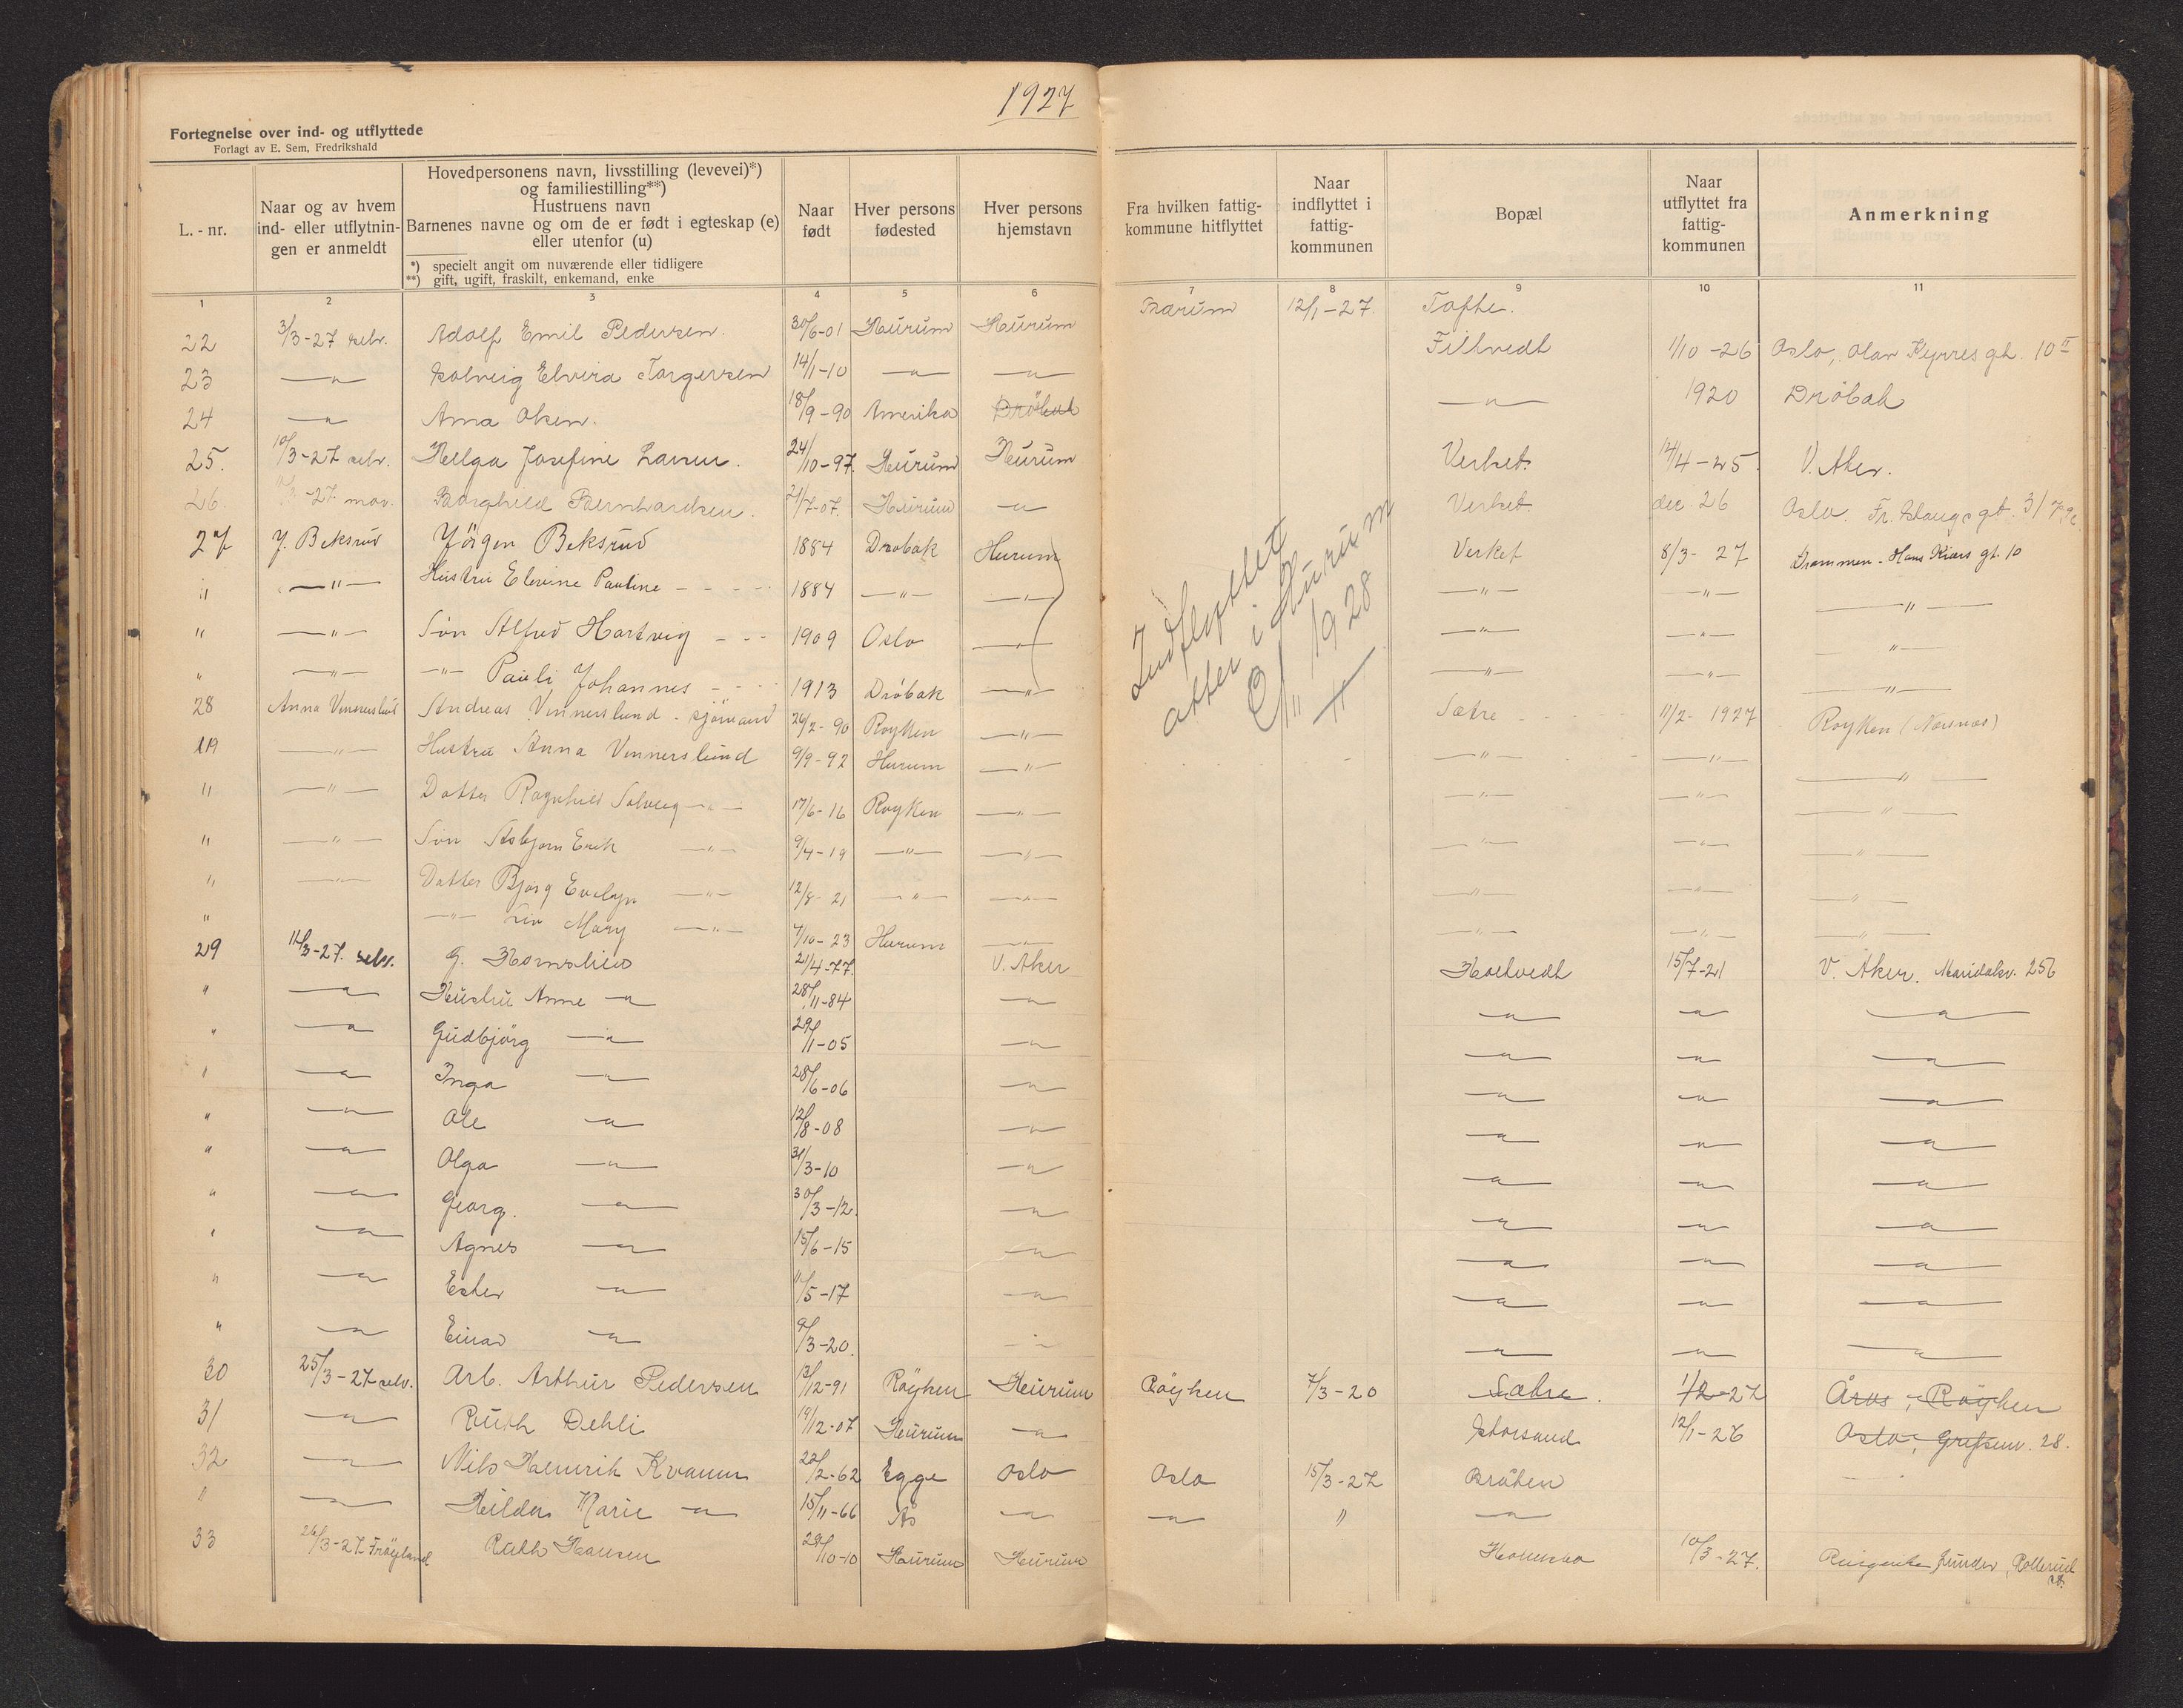 1927
Fortegnelse over ind- og utflyttede
Forlagt av E. Sem, Fredrikshald
L. - nr.
Naar og av hvem ind- eller utflytnin- gen er anmeldt
Hovedpersonens navn, livsstilling (levevei)*)
og familiestilling**)
Hustruens navn
Barnenes navne og om de er født i egteskap (e)
eller utenfor (u)
*) specielt angit om nuværende eller tidligere
**) gift, ugift, fraskilt, enkemand, enke
Naar født
Hver persons fødested
Hver persons hjemstavn
Fra hvilken fattig- kommune hitflyttet
Naar indflyttet i fattig- kommunen
Bopæl
Naar utflyttet fra fattig- kommunen
Anmerkning
1 2 3 4 5 6 7 8 9 10 11
22 3/3-27 selv. Adolf Emil Pedersen. 30/6-01 Hurum Hurum Bærum 12/1-27. Tofte.
23 —"— Solveig Elvira Torgersen 14/1-10 —"— —"— Filtvedt 1/10-26 Oslo, Olav Kyrres gt. 10 II
24 —"— Anna Olsen. 18/9-90 Amerika Drøbak —"— 1920 Drøbak
25. 10/3-27 selv. Helga Josefine Larsen. 24/10-97. Hurum Hurum Verket. 14/4-25. V. Aker.
26. -27. mor. Borghild Bernhardsen. 21/7-07. Hurum —"— Verket. dec. 26 Oslo. Fr. Haugs gt. 31
27 J. Beksrud Jörgen Beksrud 1884 Drøbak Hurum Verket 8/3-27 Drammen - Hans Kiærs gt. 10
" —"— Hustru Elevine Pauline - - - 1884 —"— —"— —"— —"— —"—
" —"— Sön Alfred Hartvig - - - 1909 Oslo —"— —"— —"— —"—
" —"— —"— Pauli Johannes - - - 1913 Drøbak —"— —"— —"— —"—
Indflyttet
atter i Hurum
1928
28 Anna Vinnerslund Andreas Vinnerslund - sjömand 26/2-90 Royken —"— Sætre 11/2-1927 Royken (Nærsnes)
" —"— Hustru Anna Vinnerslund 9/9-92 Hurum —"— —"— —"— —"—
" —"— Datter Ragnhild Solveig —"— 17/6-16 Royken —"— —"— —"— —"—
" —"— Sön Asbjørn Erik —"— 9/4-19 —"— —"— —"— —"— —"—
" —"— Datter Bjørg Evelyn —"— 12/8-21 —"— —"— —"— —"— —"—
" —"— Liv Mary —"— 7/10-23 Hurum —"— —"— —"— —"—
29 11/3-27. selv. G. Hornslien 21/4-77. V. Aker Holtvedt 15/7-21 V. Aker. Maridalsv. 256
" —"— Hustru Anne —"— 28/11-84 —"— —"— —"— —"—
" —"— Gudbjörg —"— 29/1-05 —"— —"— —"— —"—
" —"— Inga —"— 28/6-06 —"— —"— —"— —"—
" —"— Ole —"— 12/8-08 —"— —"— —"— —"—
" —"— Olga —"— 31/3-10 —"— —"— —"— —"—
" —"— Georg. —"— 30/3-12. —"— —"— —"— —"—
" —"— Agnes —"— 15/6-15 —"— —"— —"— —"—
" —"— Ester —"— 11/5-17 —"— —"— —"— —"—
" —"— Einar —"— 9/3-20. —"— —"— —"— —"—
30 25/3-27 selv. Arb. Arthur Pedersen 13/12-91 Röyken Hurum Röyken 7/3-20 Sætre. 1/2-27 Åros, Röyken
31 —"— Ruth Dehli 19/12-07 Hurum —"— Storsand 12/1-26 Oslo, Grefsenv. 28.
32 —"— Nils Henrik Kvamm 22/2-62 Egge Oslo Oslo 15/3-27 Bråten
" —"— Hilda Marie —"— 15/11-66 Ås —"— —"— " —"—
33 26/3-27 Fröyland Ruth Hansen 29/10-10 Hurum Hurum Holmsbo 10/3-27.